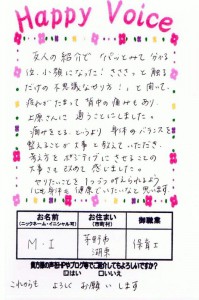 Happy Voice
友人の紹介で「パッとみて分かる
泣、小顔になった！ささっと触る
だけの不思議なやり方！」と聞いて、
疲れがたまって背中の痛みもあり、
上原さんに通うことにしました。
痛みをとる、というより身体のバランスを
整えることが大事と教えていただき、
考え方をポジティブにさせることの
大事さも改めて感じました。
やりたいことをバッチリ叶えられるよう
心も身体も健康でいたいなと思います。
お名前
(ニックネーム・イニシャル可)
お住まい
(市町村)
御職業
M・I
茅野市
湖東
保育士
貴方様の声をHPやブログ等でご紹介してもよろしいですか？
□はい □いいえ
これからも よろしくお願いします